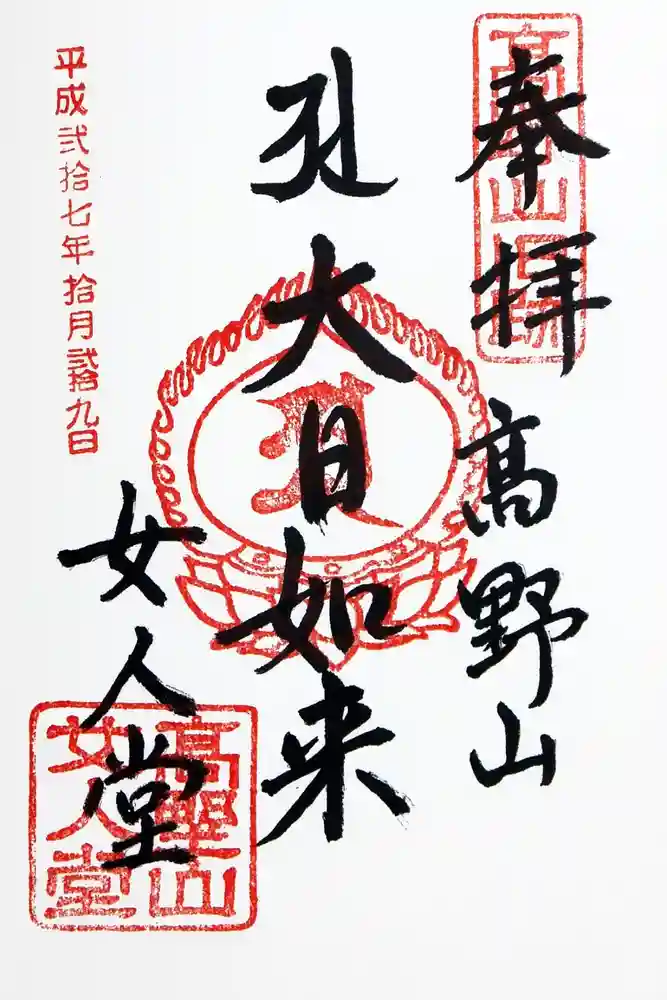 奉拝
高野山
大日如来
女人堂
平成弐拾七年拾月弐拾九日
高野山
女人堂